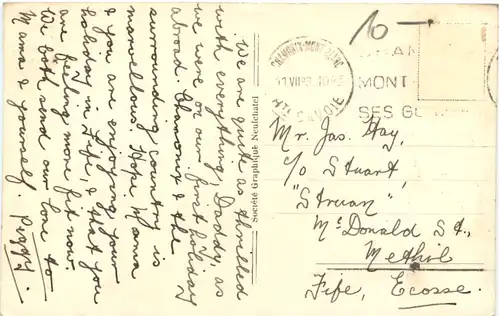 We are quite as thrilled
with everything, Daddy, as
we were on our first holiday
abroad. Chamonix & the
surrounding country is
marvellous. Hope Mama
& you are enjoying your
holiday in Fife, & that you
are feeling more fit now.
We both send our love to
Mama & yourself. Piggy.
Société Graphique Neuchatel
CHAMONIX-MONT-BLANC
HTE SAVOIE
MONT
SES
10 —
Mr. Jas. Hay,
c/o Stuart,
"Struan"
McDonald St.,
Methil
Fife, Ecosse.